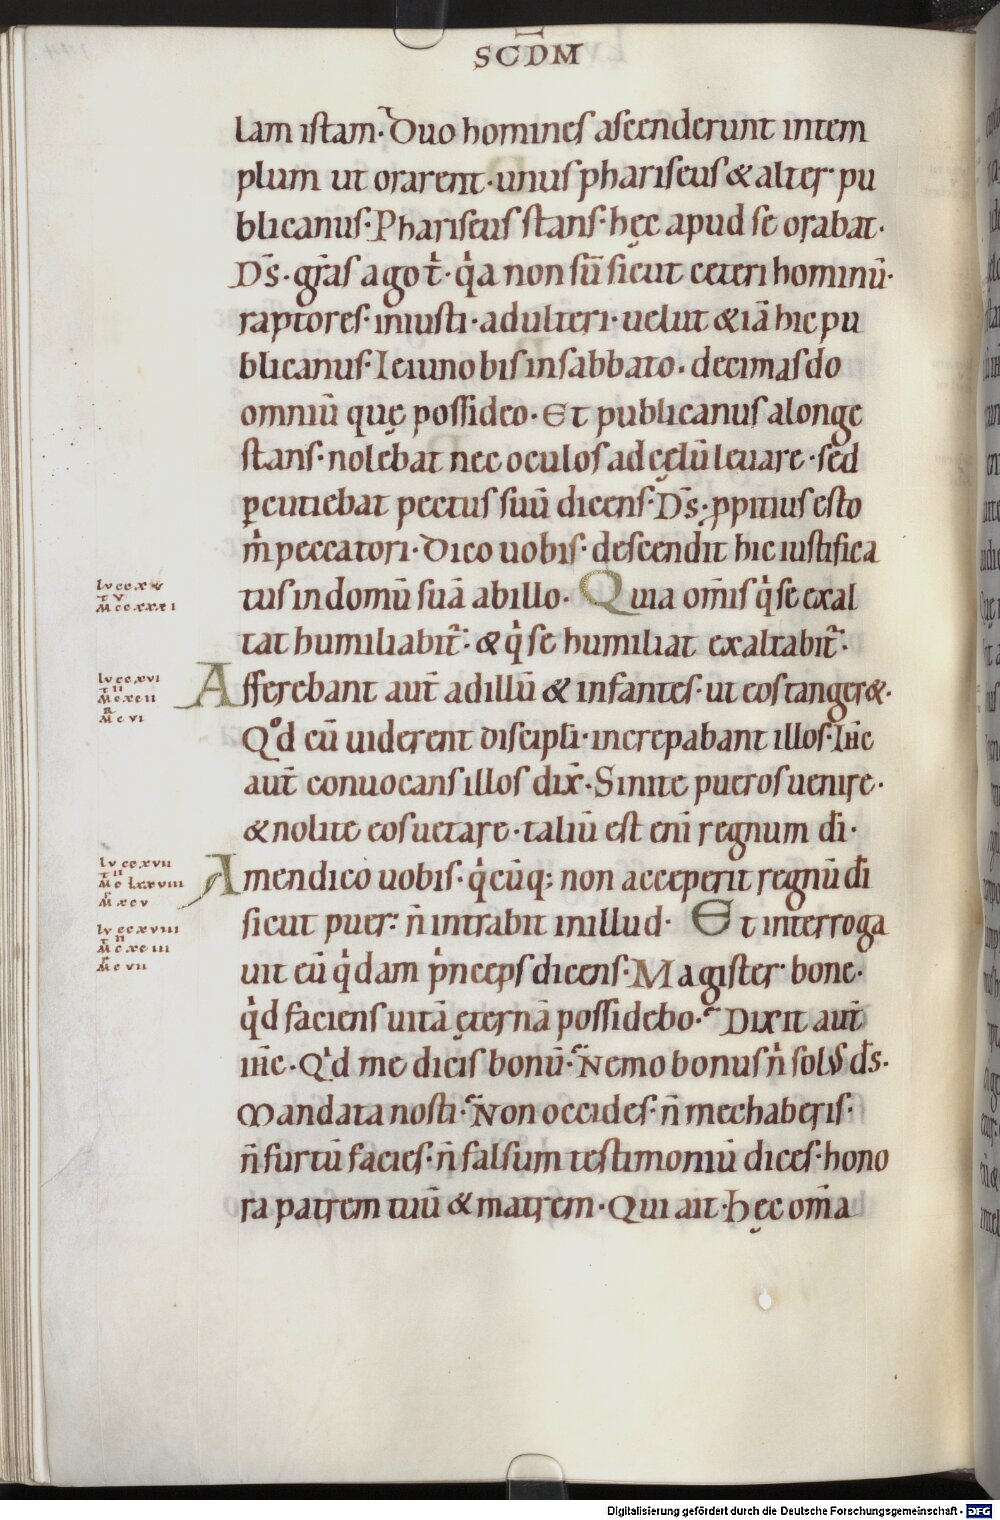 SCDM
lam istam· Duo homines ascenderunt intem
plum ut orarent· unus phariseus & alter pu
blicanus· Phariseus stans· hęc apud se orabat·
Ds̄· gr̄as ago t̓· q̓a non sū sicut ceteri hominū·
raptores· iniusti· adulteri· uelut & iā hic pu
blicanus· Ieiuno bis in sabbato· decimas do
omniū quę possideo· Et publicanus alonge
stans· nolebat nec oculos ad cęlū leuare· sed
ꝑcutiebat pectus suū dicens· Ds̄· ꝓpitius esto
m̓ peccatori· Dico uobis· descendit hic iustifica
tus in domū suā abillo· Quia om̄is q̓ se exal
tat humiliabit̄· & q̓ se humiliat exaltabit̄·
Afferebant aut̄ ad illū & infantes· ut eos tanger&·
Qd̊ cū uiderent discipli̅· increpabant illos· Ih̄c
aut̄ conuocans illos dix̄· Sinite pueros uenire·
& nolite eos uetare· taliū est eni̅ regnum di̅·
Amen dico uobis· q̓cūq; non acceperit regnū di̅
sicut puer: n̄ intrabit in illud· Et interroga
uit eū q̓dam p̓nceps dicens· Magister bone·
q̓d faciens uitā ęternā possidebo· Dixit aut̄
ih̄c· Q̓d me dicis bonū· Nemo bonus n̓ solus ds̄·
Mandata nosti· Non occides· n̄ mechaberis·
n̄ furtū facies· n̄ falsum testimoniū dices· hono
ra patrem tuū & matrem· Qui ait· hęc om̄a
lv ccxv
t v
M ccxxxi
lv ccxvi
t ii
M cxcii
R
M cvi
lv ccxvii
t ii
M clxxviii
R
M xcv
lv ccxviii
t ii
M cxciii
R
M cvii
Digitalisierung gefördert durch die Deutsche Forschungsgemeinschaft - DFG